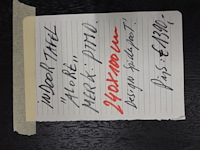 INDOOR TAFEL
"ALORE"
MERK: PTMD.
240X100cm
Design Spiderpoot!
Prijs: € 1310,-